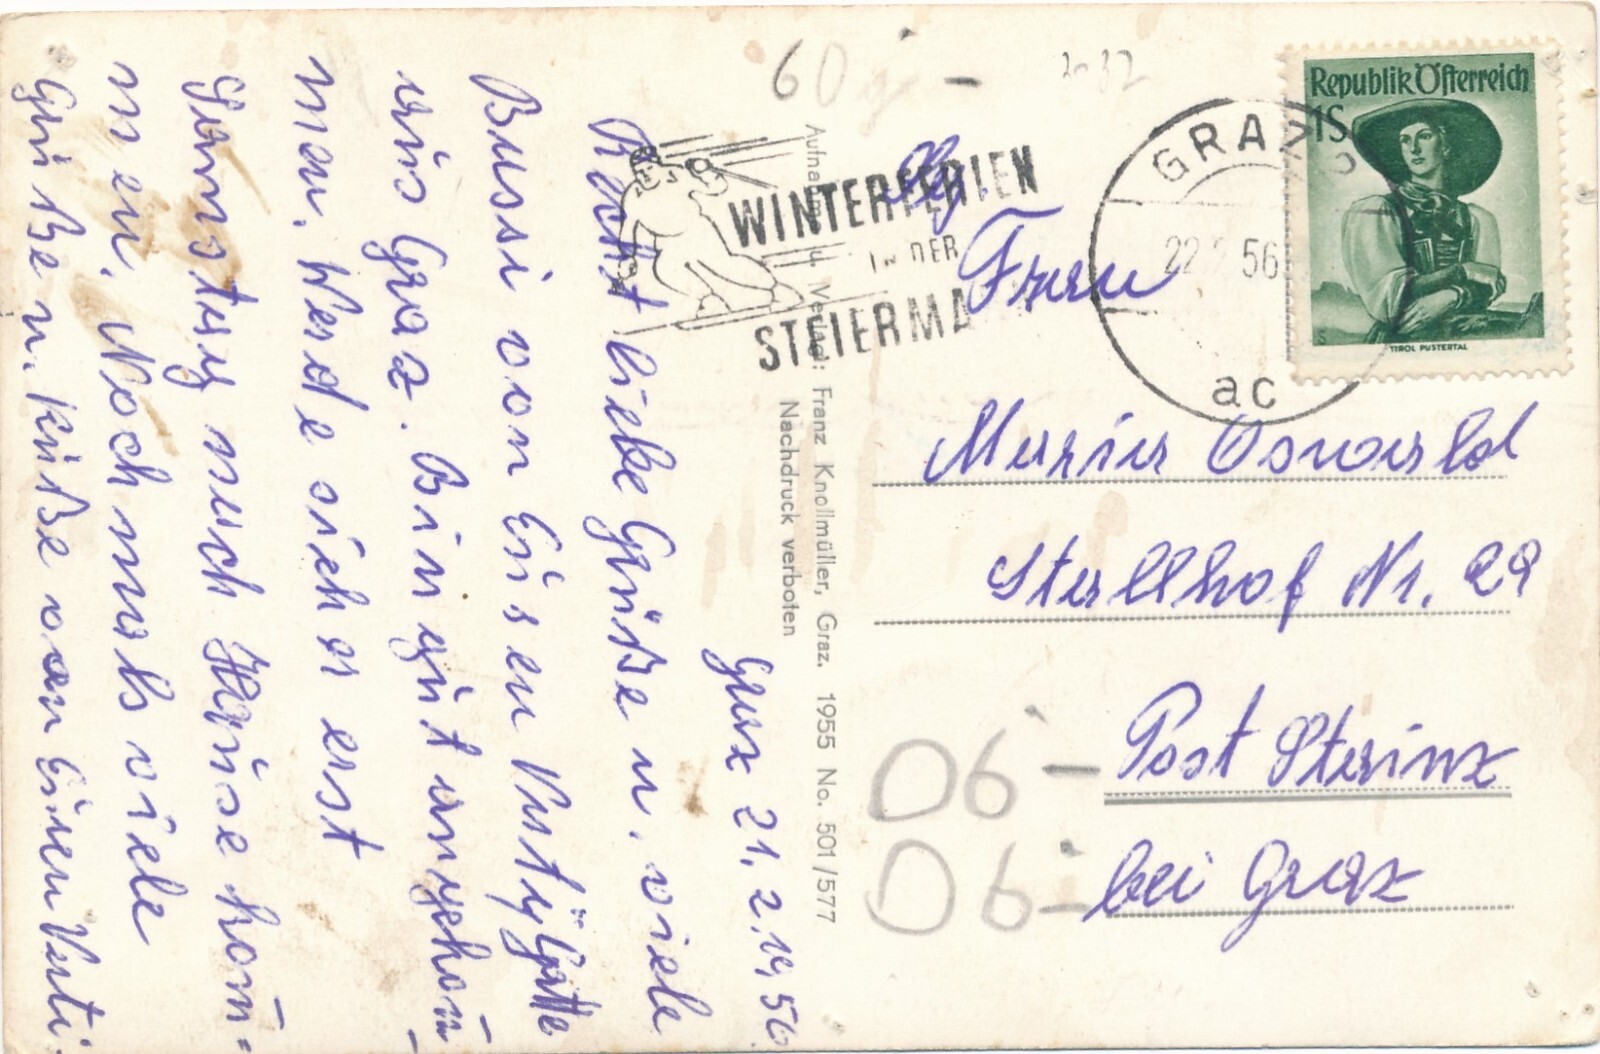 Graz 21.2.1956
Recht liebe Grüße u. viele
Bussi von Eisen Vati Gatte
aus Graz. Bin gut angekom̄-
men. Werde sicher erst
Samstag nach Hause kom̄=
men. Nochmals viele
Grüße u. Küße von Eueren Vati.
Aufnahme u. Verlag: Franz Knollmüller, Graz. 1955 No. 501/577
Nachdruck verboten
60
WINTERFERIEN
IN DER
STEIERMA
GRAZ
22.2.56
ac
Republik Österreich
1S
TIROL PUSTERTAL
Frau
Maria Oswald
Stallhof Nr. 29
06- Post Stainz
06- bei Graz